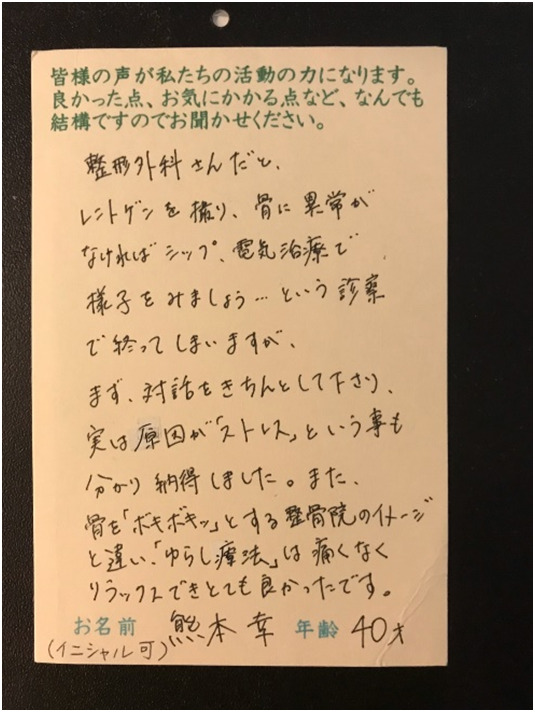 皆様の声が私たちの活動の力になります。
良かった点、お気にかかる点など、なんでも
結構ですのでお聞かせください。
整形外科さんだと、
レントゲンを撮り、骨に異常が
なければシップ、電気治療で
様子をみましょう…という診察
で終ってしまいますが、
まず、対話をきちんとして下さり、
実は原因が「ストレス」という事も
分かり納得しました。また、
骨を「ボキボキッ」とする整骨院のイメージ
と違い、「ゆらし療法」は痛くなく
リラックスできとても良かったです。
お名前 熊本幸 年齢 40才
(イニシャル可)